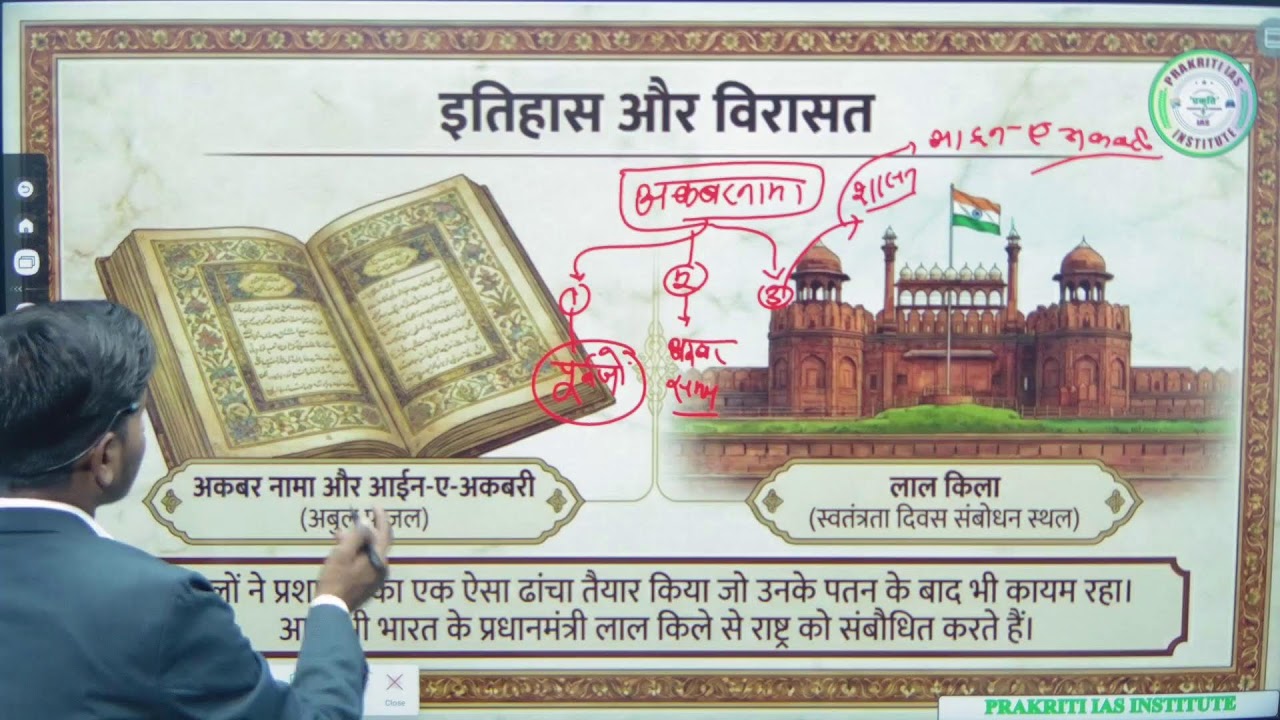 इतिहास और विरासत
PRAKRITI IAS
"प्रकृति"
IAS
INSTITUTE
आइन-ए अकबरी
अकबरनामा
शासन
1
2
3
पूर्वजों
अकबर
अकबर नामा और आईन-ए-अकबरी
लाल किला
(स्वतंत्रता दिवस संबोधन स्थल)
का एक ऐसा ढांचा तैयार किया जो उनके पतन के बाद भी कायम रहा।
भारत के प्रधानमंत्री लाल किले से राष्ट्र को संबोधित करते हैं।
Close
PRAKRITI IAS INSTITUTE